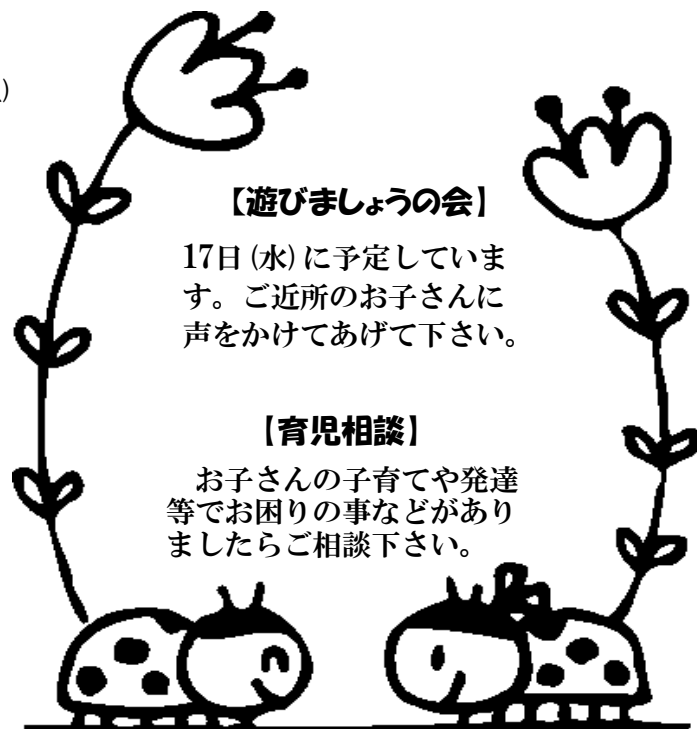 )
【遊びましょうの会】
17日(水)に予定していま
す。ご近所のお子さんに
声をかけてあげて下さい。
【育児相談】
お子さんの子育てや発達
等でお困りの事などがあり
ましたらご相談下さい。